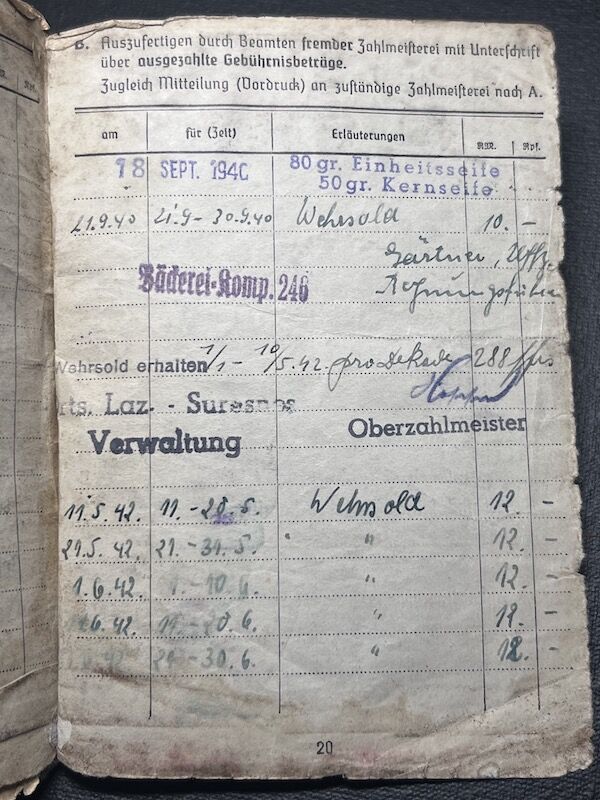 B. Auszufertigen durch Beamten fremder Zahlmeisterei mit Unterschrift
über ausgezahlte Gebührnisbeträge.
Zugleich Mitteilung (Vordruck) an zuständige Zahlmeisterei nach A.
am für (Zeit) Erläuterungen RM. Rpf.
18 SEPT. 1940 80 gr. Einheitsseife
50 gr. Kernseife
21.9.40 21.9 - 30.9.40 Wehrsold 10. -
Gärtner, Uffz.
Bäckerei-Komp. 246 Rechnungsführer
Wehrsold erhalten 1/1 - 10/5.42. pro Dekade 288 ffrs
rts. Laz. - Suresnes
Verwaltung Oberzahlmeister
11.5.42. 11. - 20.5. Wehrsold 12. -
21.5.42. 21. - 31.5. " 12. -
1.6.42. 1. - 10.6. " 12. -
11.6.42. 11. - 20.6. " 12. -
42. 21. - 30.6. " 12. -
20